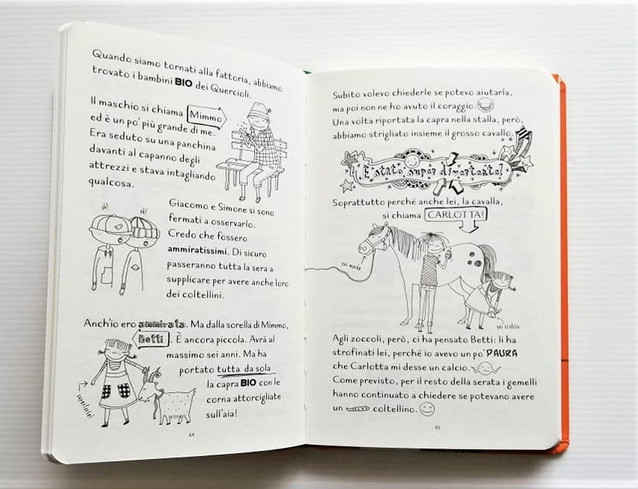 Quando siamo tornati alla fattoria, abbiamo
trovato i bambini BIO dei Quercioli.
Il maschio si chiama Mimmo
ed è un po' più grande di me.
Era seduto su una panchina
davanti al capanno degli
attrezzi e stava intagliando
qualcosa.
Giacomo e Simone si sono
fermati a osservarlo.
Credo che fossero
ammiratissimi. Di sicuro
passeranno tutta la sera a
supplicare per avere anche loro
dei coltellini.
Anch'io ero ammirata. Ma dalla sorella di Mimmo,
Betti. È ancora piccola. Avrà al
massimo sei anni. Ma ha
portato tutta da sola
la capra BIO con le
corna attorcigliate
sull'aia!
64
Subito volevo chiederle se potevo aiutarla,
ma poi non ne ho avuto il coraggio.
Una volta riportata la capra nella stalla, però,
abbiamo strigliato insieme il grosso cavallo.
È stato super divertente!
Soprattutto perché anche lei, la cavalla,
si chiama CARLOTTA!
Agli zoccoli, però, ci ha pensato Betti: li ha
strofinati lei, perché io avevo un po' PAURA
che Carlotta mi desse un calcio.
Come previsto, per il resto della serata i gemelli
hanno continuato a chiedere se potevano avere
un coltellino.
65